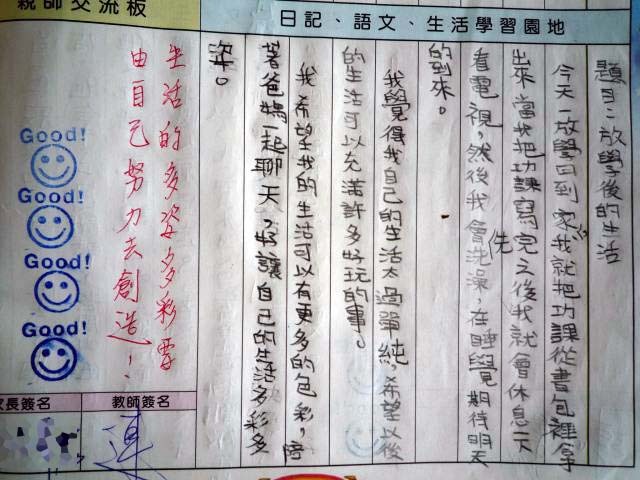 日記、語文、生活學習園地
題目:放學後的生活
今天一放學回到家,我就把功課從書包裡拿
出來當我把功課寫完之後我就會休息一下
看電視,然後我會洗澡,在睡覺期待明天
洗
的到來。
我覺得我自己的生活太過單純,希望以後
的生活可以充滿許多好玩的事。
我希望我的生活可以有更多的色彩,陪
著爸媽一起聊天,好讓自己的生活多彩多
姿。
親師交流板
生活的多姿多彩要
由自己努力去創造!
Good!
Good!
Good!
Good!
教師簽名
家長簽名